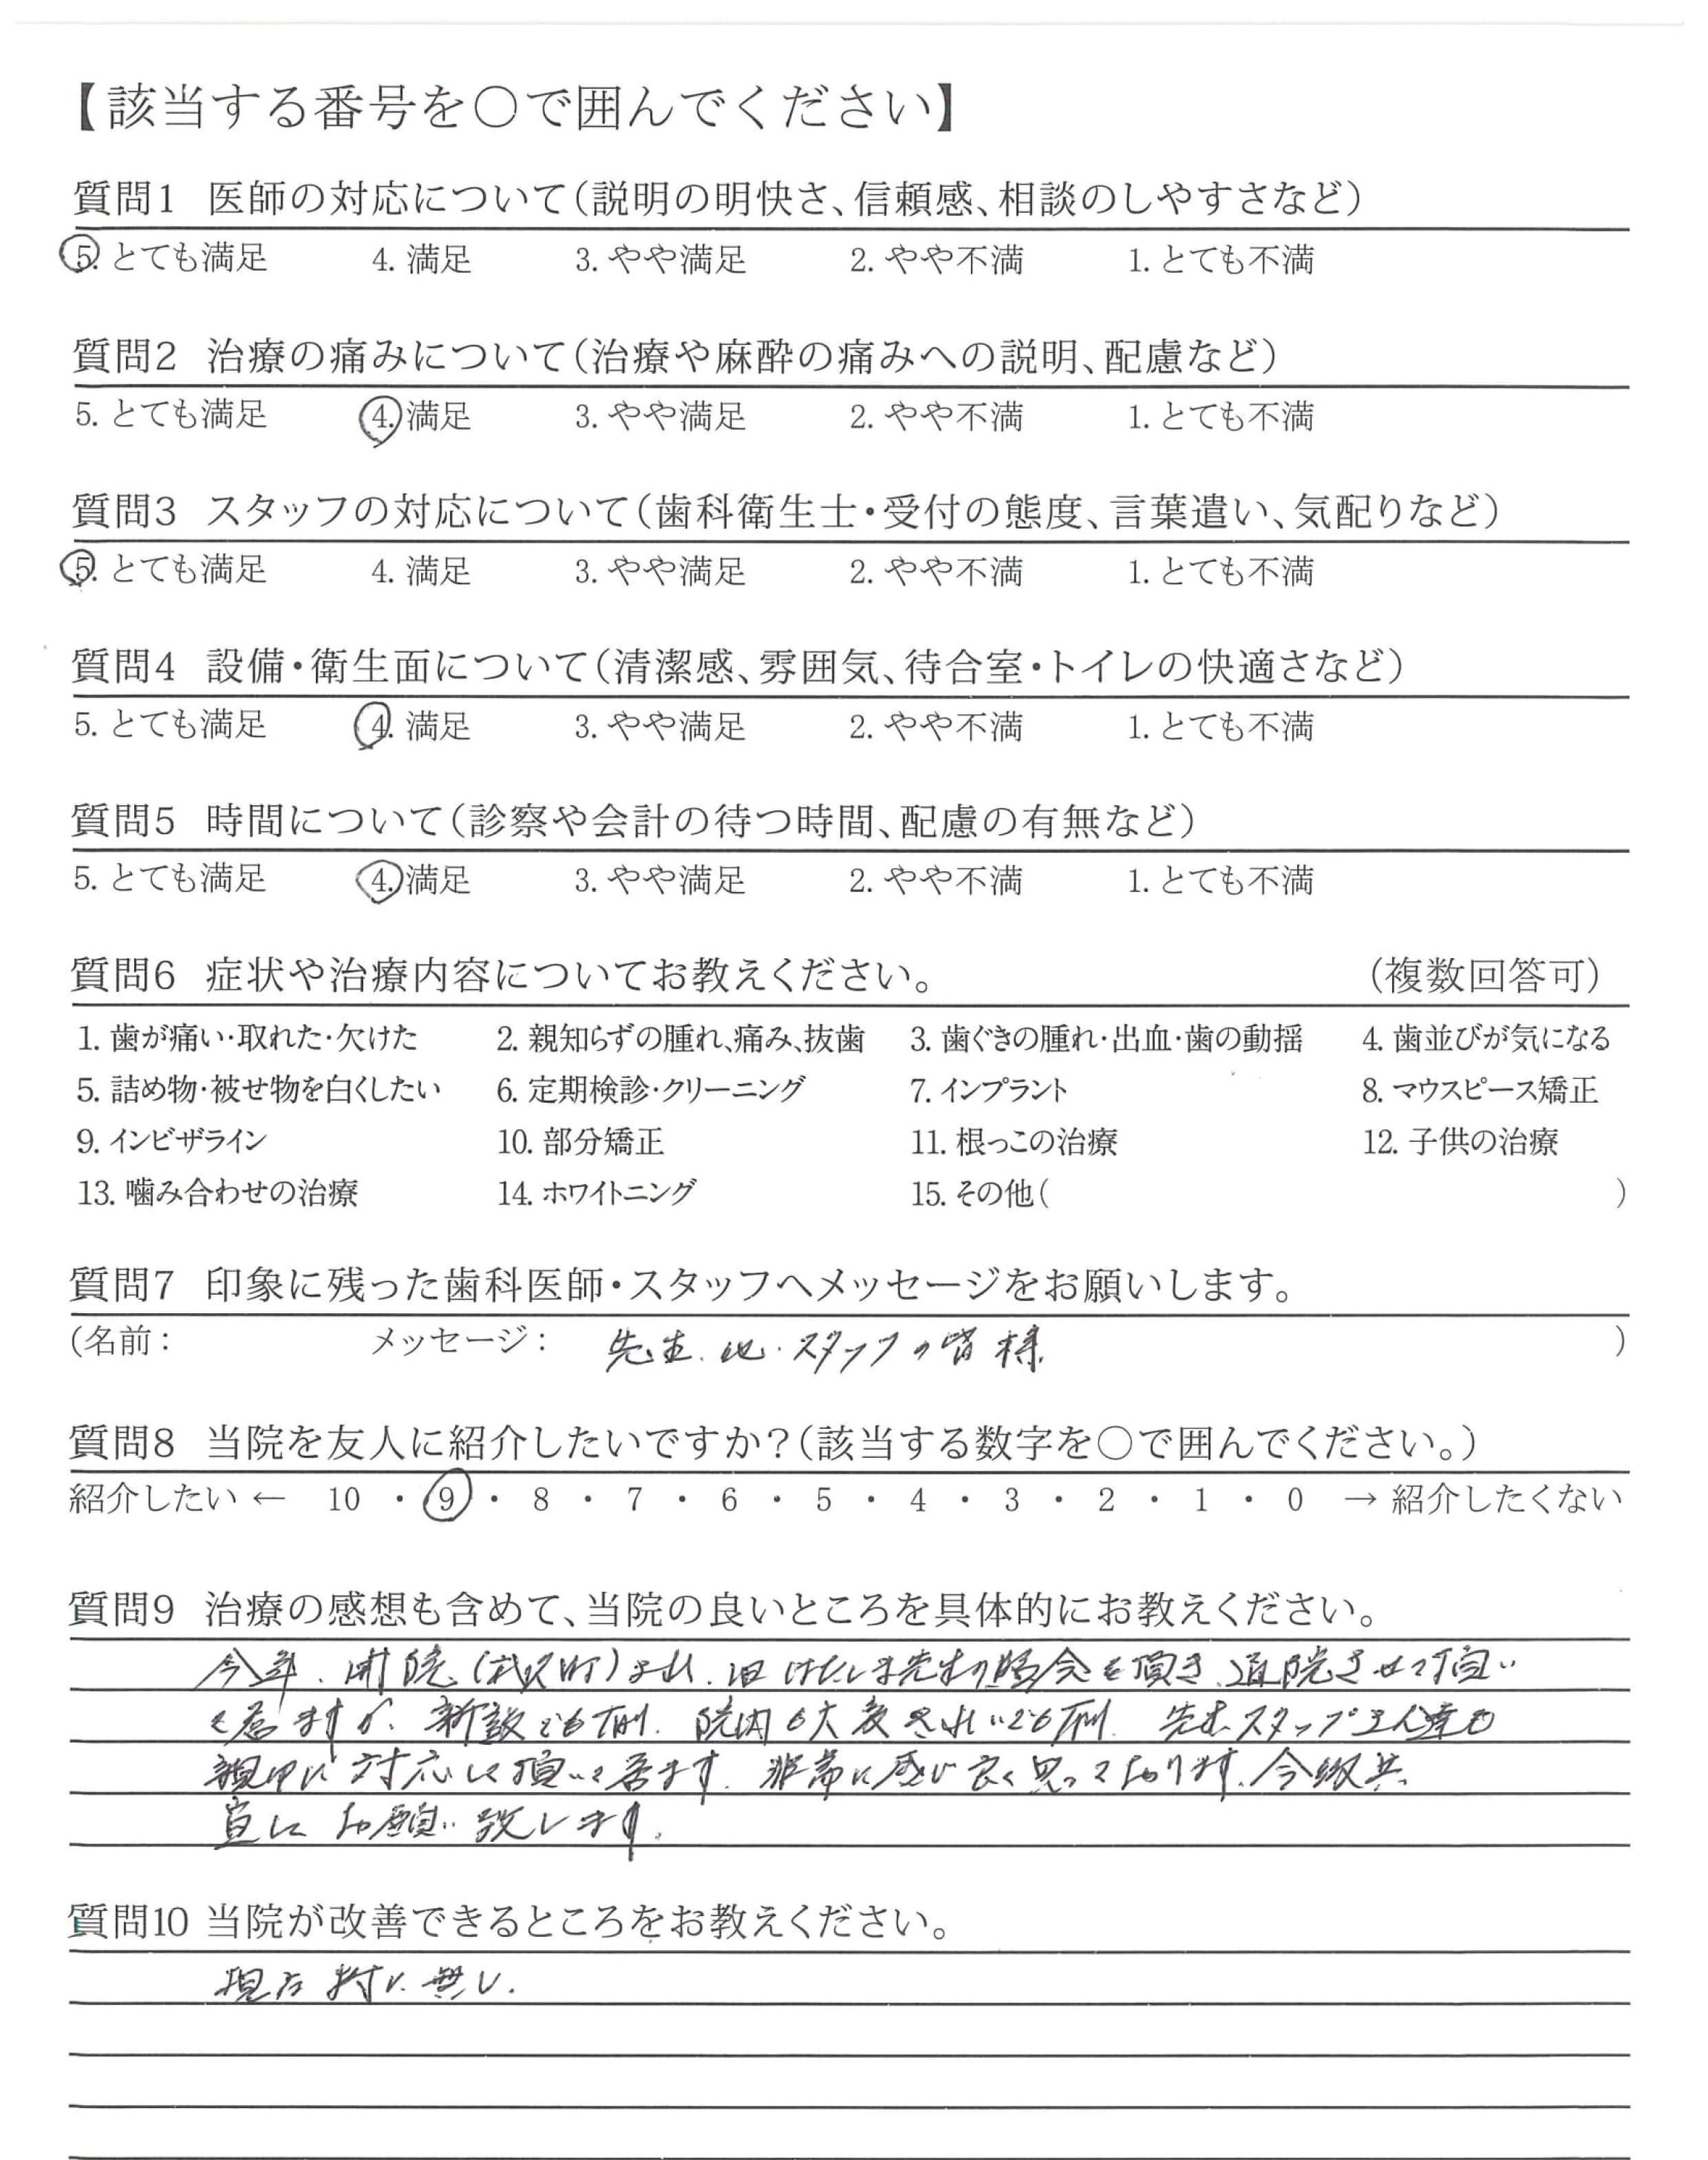 【該当する番号を○で囲んでください】
質問1 医師の対応について(説明の明快さ、信頼感、相談のしやすさなど)
5. とても満足 4. 満足 3. やや満足 2. やや不満 1. とても不満
質問2 治療の痛みについて(治療や麻酔の痛みへの説明、配慮など)
5. とても満足 4. 満足 3. やや満足 2. やや不満 1. とても不満
質問3 スタッフの対応について(歯科衛生士・受付の態度、言葉遣い、気配りなど)
5. とても満足 4. 満足 3. やや満足 2. やや不満 1. とても不満
質問4 設備・衛生面について(清潔感、雰囲気、待合室・トイレの快適さなど)
5. とても満足 4. 満足 3. やや満足 2. やや不満 1. とても不満
質問5 時間について(診察や会計の待つ時間、配慮の有無など)
5. とても満足 4. 満足 3. やや満足 2. やや不満 1. とても不満
質問6 症状や治療内容についてお教えください。 (複数回答可)
1. 歯が痛い・取れた・欠けた 2. 親知らずの腫れ、痛み、抜歯 3. 歯ぐきの腫れ・出血・歯の動揺 4. 歯並びが気になる
5. 詰め物・被せ物を白くしたい 6. 定期検診・クリーニング 7. インプラント 8. マウスピース矯正
9. インビザライン 10. 部分矯正 11. 根っこの治療 12. 子供の治療
13. 噛み合わせの治療 14. ホワイトニング 15. その他( )
質問7 印象に残った歯科医師・スタッフへメッセージをお願いします。
(名前: メッセージ: 先生、他、スタッフの皆様 )
質問8 当院を友人に紹介したいですか?(該当する数字を○で囲んでください。)
紹介したい ← 10 ・ 9 ・ 8 ・ 7 ・ 6 ・ 5 ・ 4 ・ 3 ・ 2 ・ 1 ・ 0 → 紹介したくない
質問9 治療の感想も含めて、当院の良いところを具体的にお教えください。
今年、開院 先生の を頂き、通院させて頂い
て居ますが、新設でも有り、院内も大変きれいでも有り、先生、スタッフ
親切に対応して頂いて居ます。非常に感じ良く思っております。今後共
宜しくお願い致します。
質問10 当院が改善できるところをお教えください。
現在特に無し。